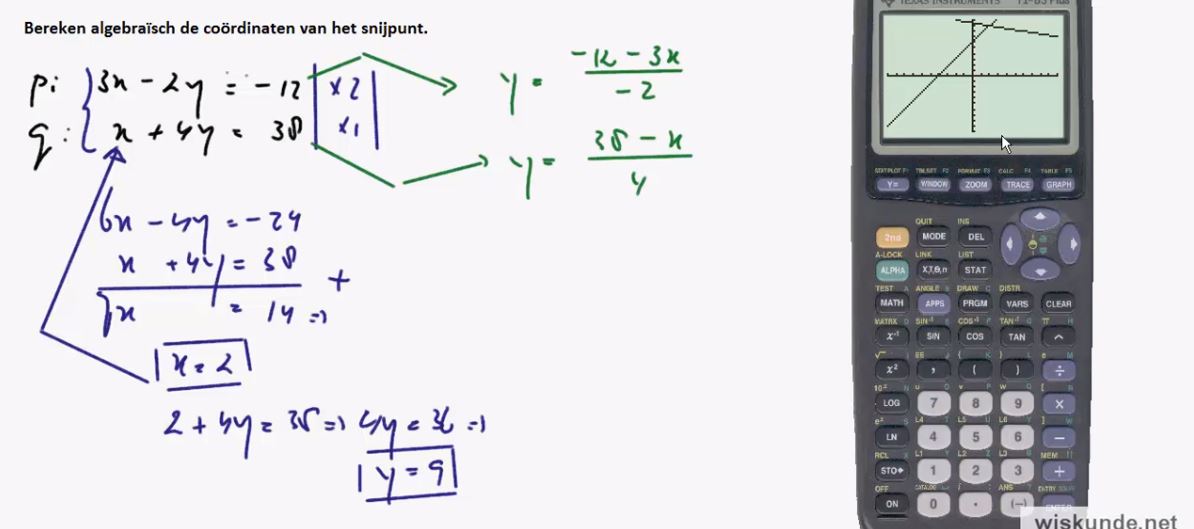 Bereken algebraïsch de coördinaten van het snijpunt.
p: 3x - 2y = -12 | x2 |
q: x + 4y = 38 | x1 |
y = (-12 - 3x) / -2
y = (38 - x) / 4
6x - 4y = -24
x + 4y = 38 +
7x = 14 ⇒
x = 2
2 + 4y = 38 ⇒ 4y = 36 ⇒
y = 9
TEXAS INSTRUMENTS TI-83 Plus
STAT PLOT F1 TBLSET F2 FORMAT F3 CALC F4 TABLE F5
Y= WINDOW ZOOM TRACE GRAPH
QUIT INS
2nd MODE DEL
A-LOCK LINK LIST
ALPHA X,T,θ,n STAT
TEST A ANGLE B DRAW C DISTR
MATH APPS PRGM VARS CLEAR
MATRX D SIN⁻¹ E COS⁻¹ F TAN⁻¹ G π H
x⁻¹ SIN COS TAN ^
√ I EE J { K } L e M
x² , ( ) ÷
10ˣ N u O v P w Q [ R
LOG 7 8 9 ×
eˣ S L4 T L5 U L6 V ] W
LN 4 5 6 −
RCL X L1 Y L2 Z L3 θ MEM "
STO▸ 1 2 3 +
OFF CATALOG i : ANS ? ENTRY SOLVE
ON 0 . (−) ENTER
wiskunde.net